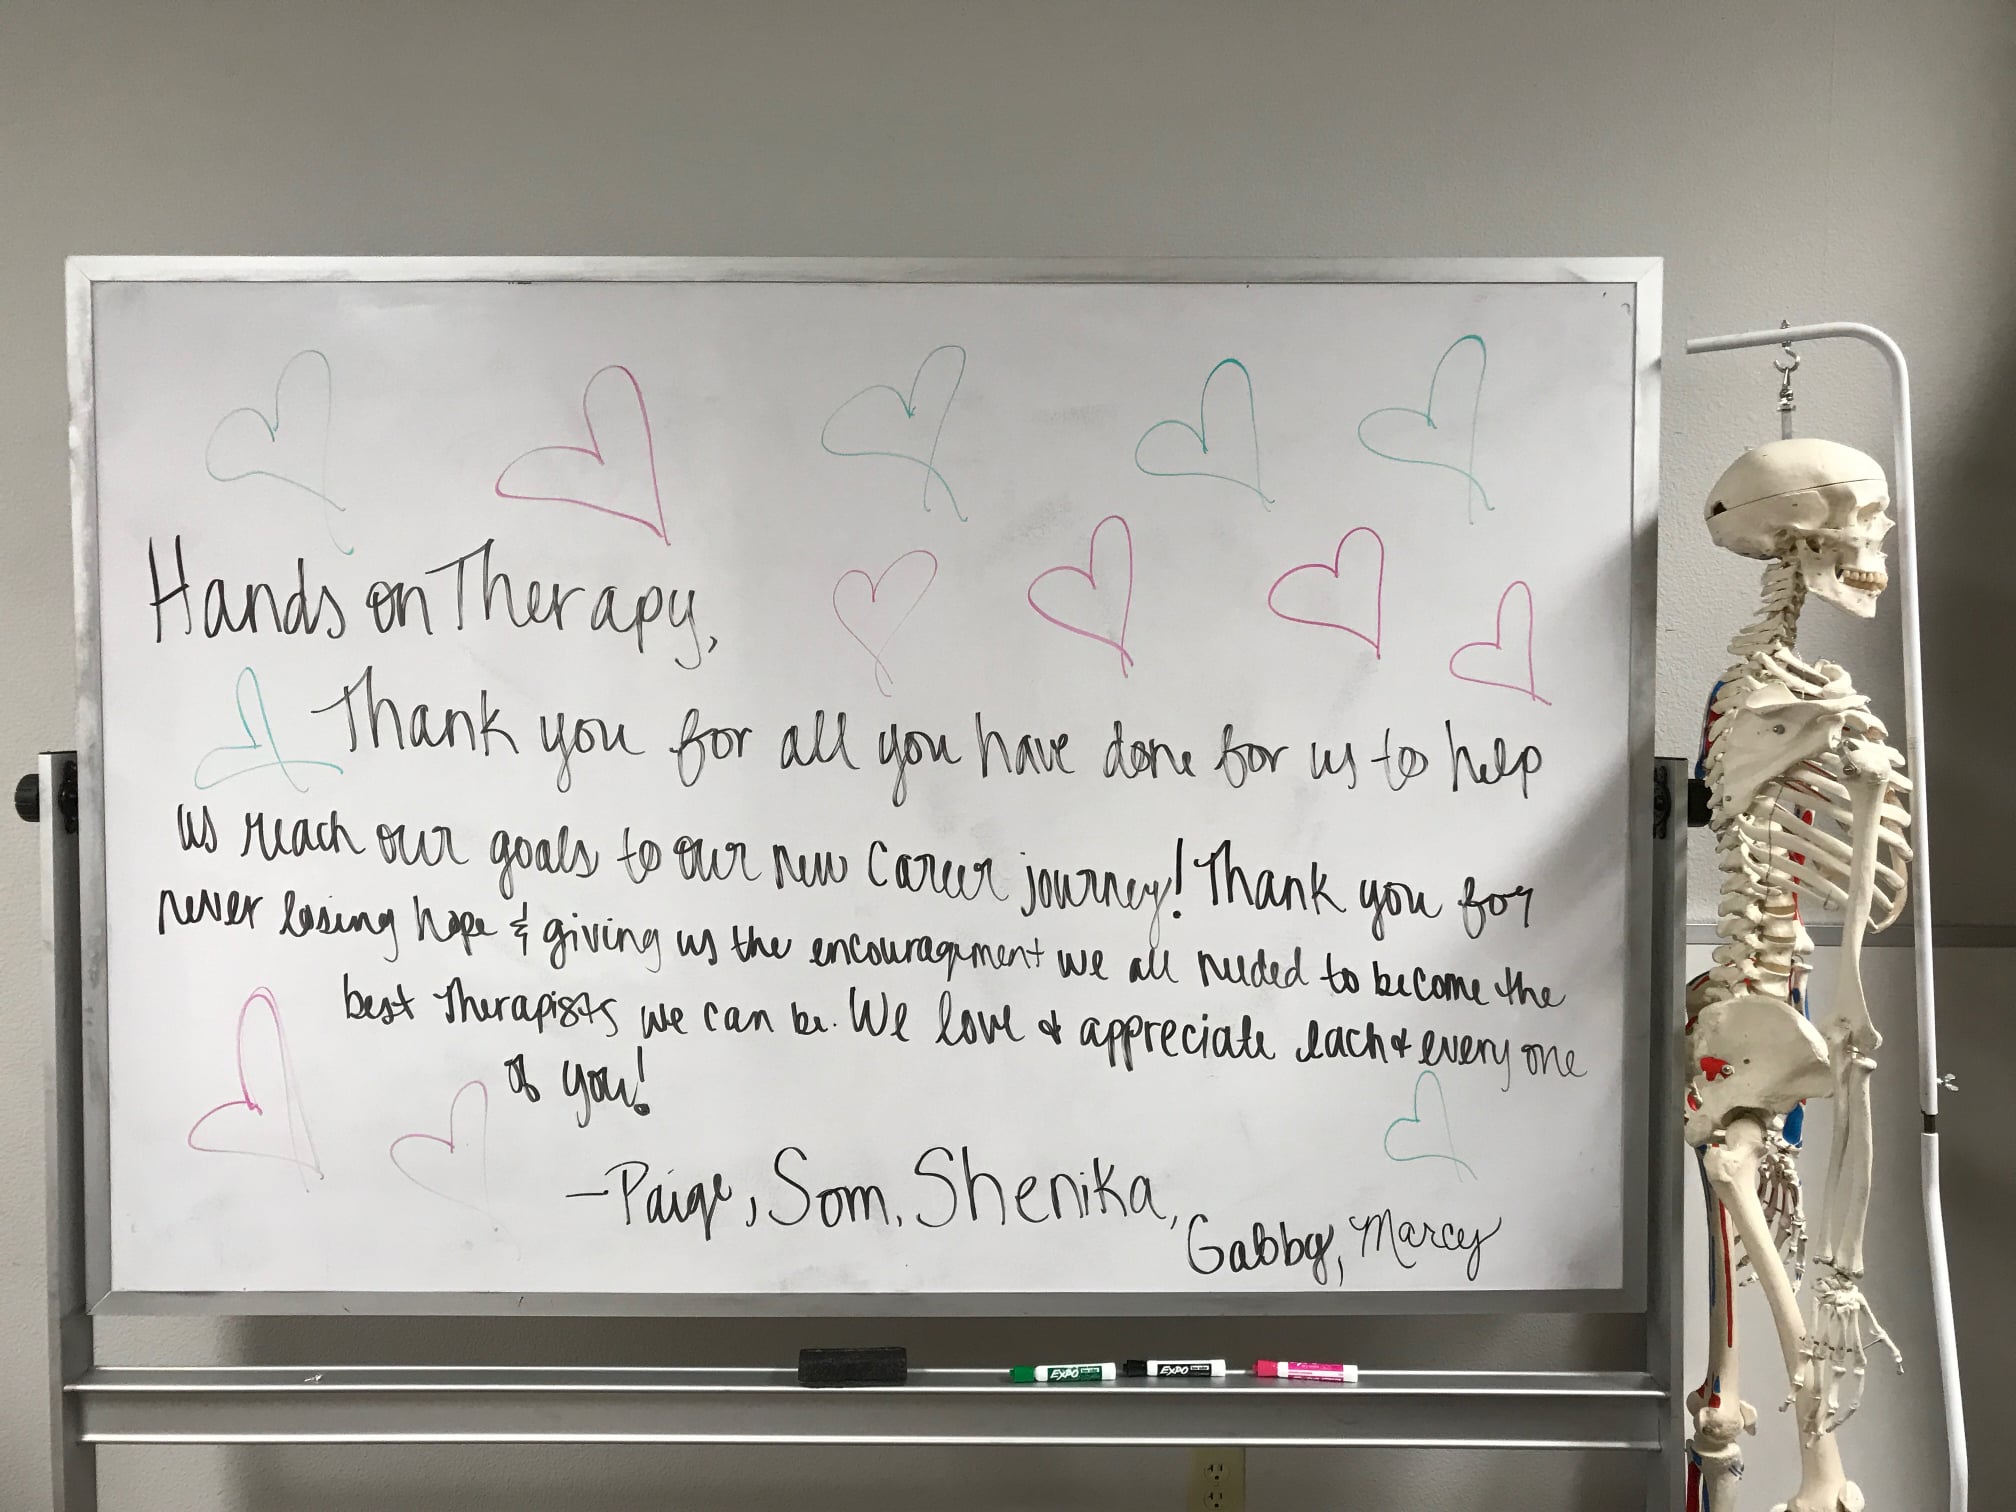 Hands on Therapy,
Thank you for all you have done for us to help
us reach our goals to our new career journey! Thank you for
never losing hope & giving us the encouragement we all needed to become the
best Therapists we can be. We love & appreciate each & every one
of you!
—Paige, Som, Shenika,
Gabby, Marcy
EXPO EXPO